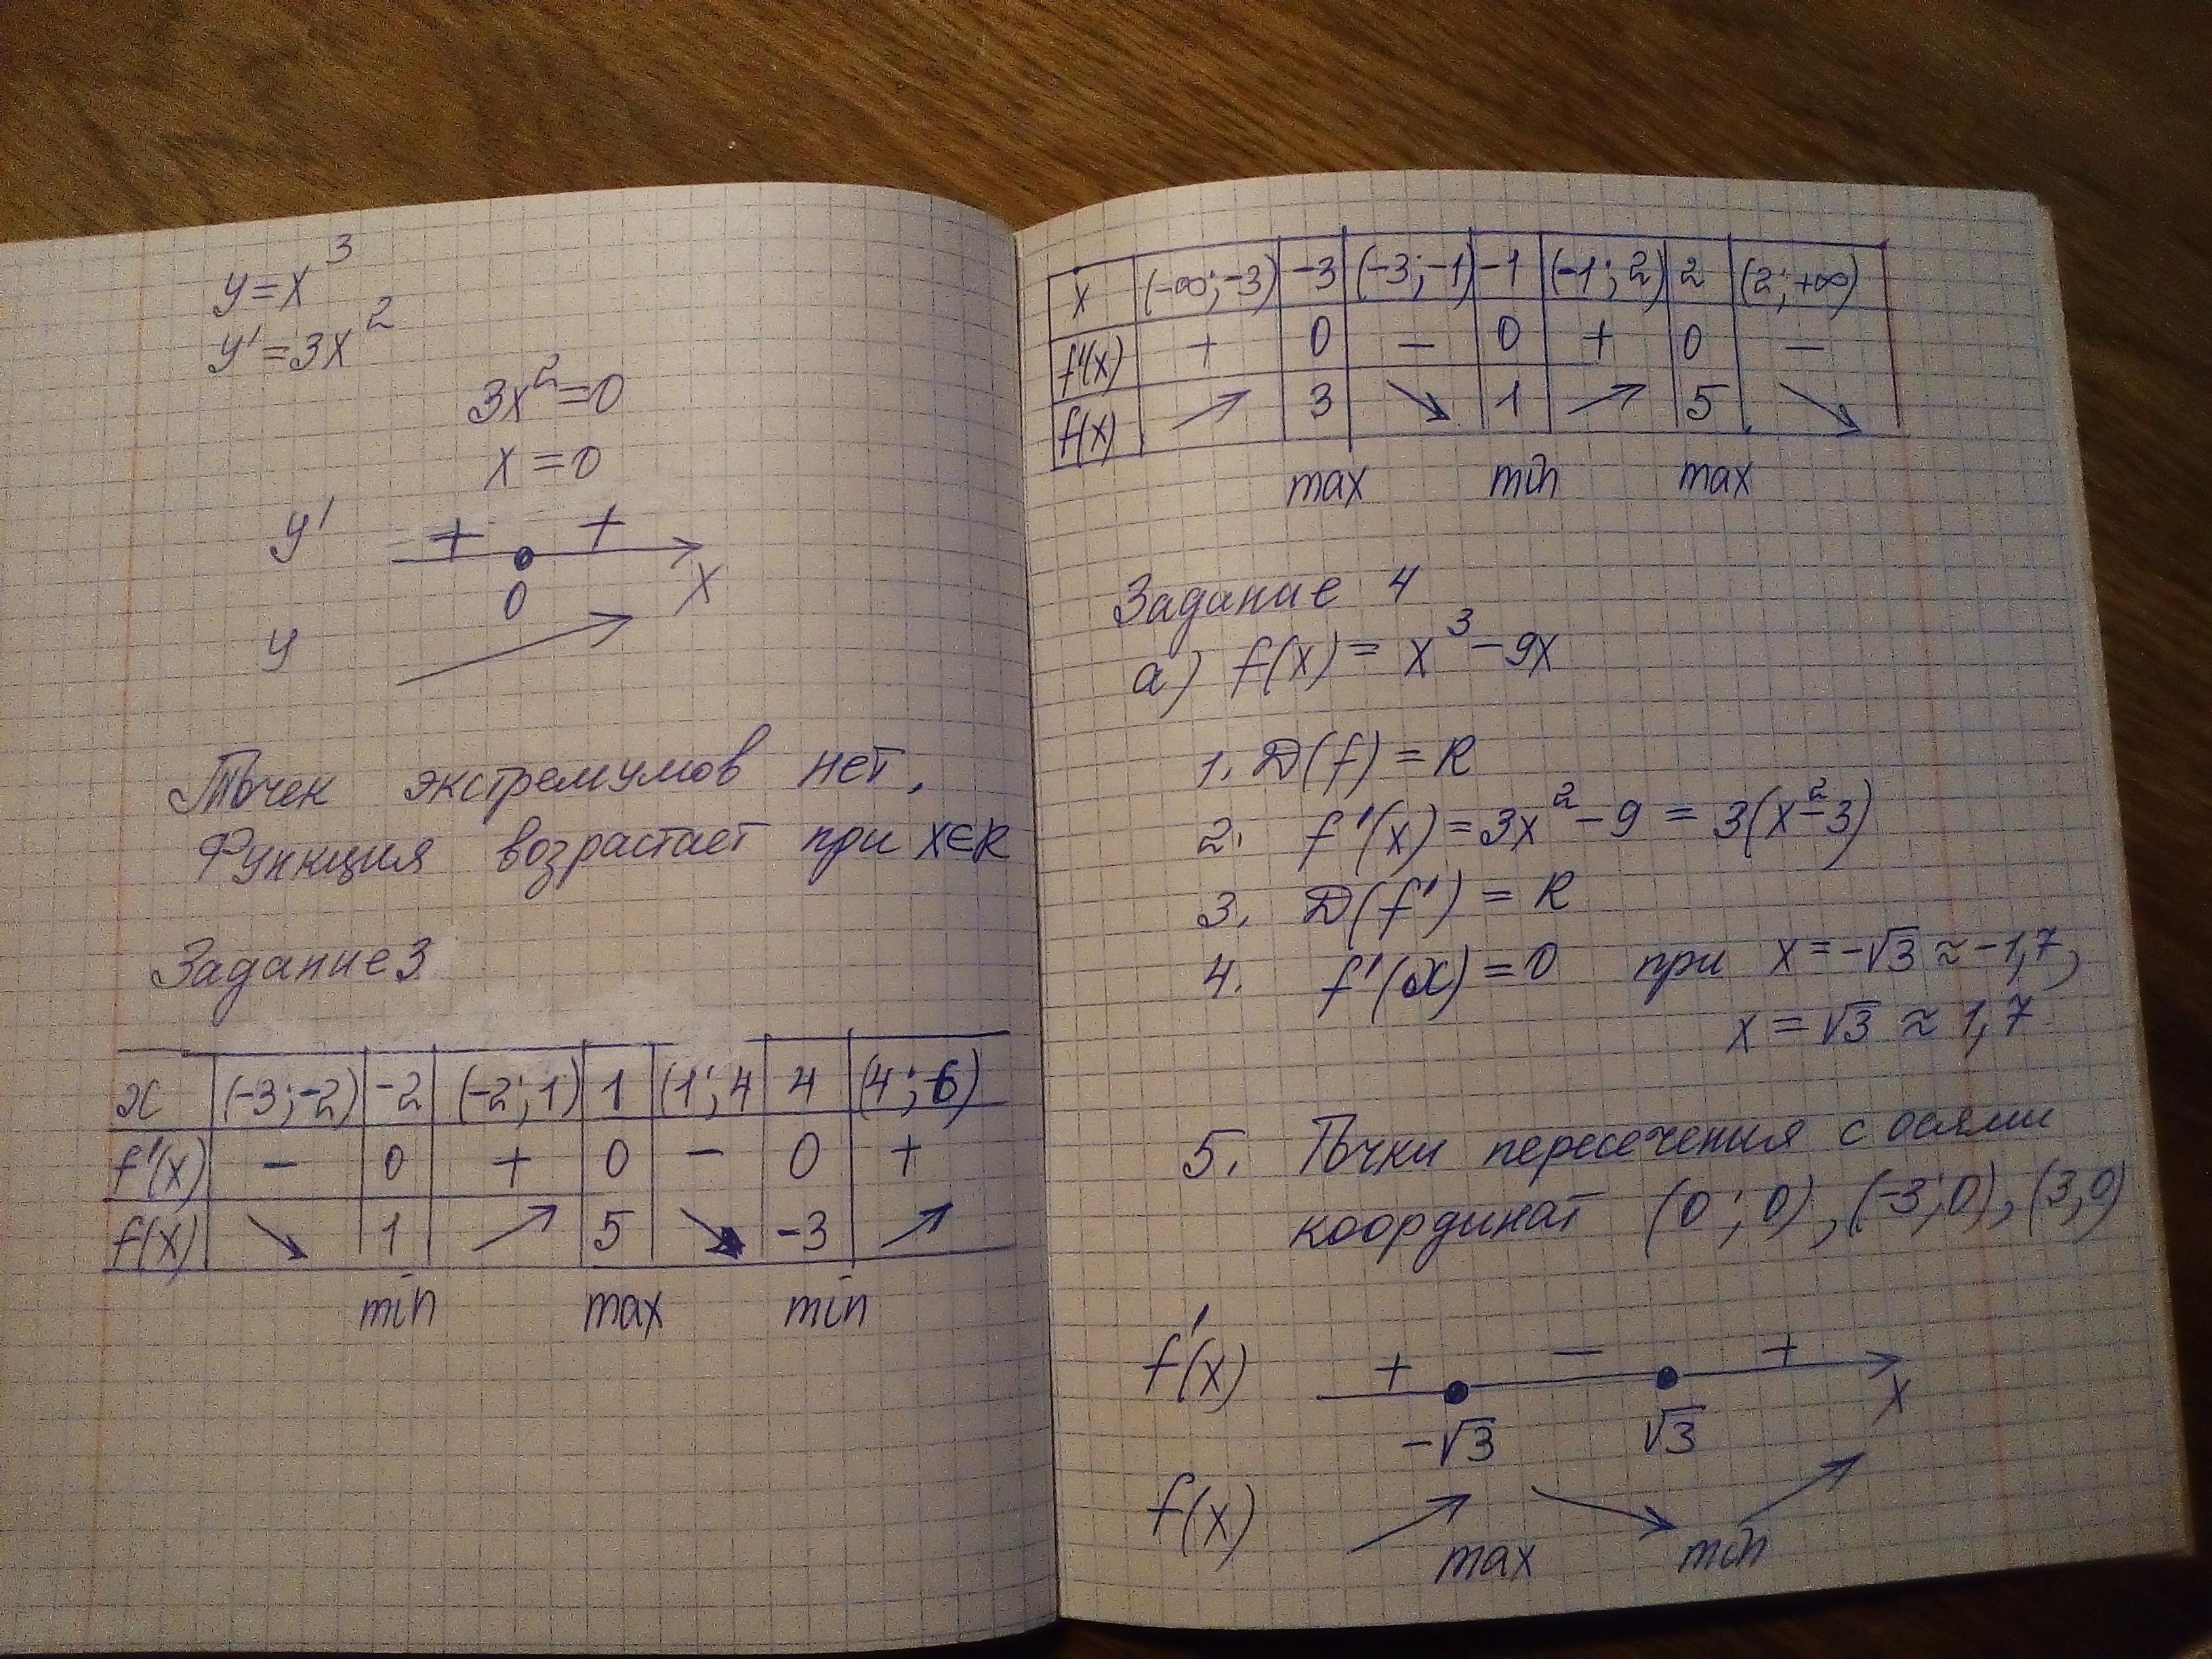 y=x³
y'=3x²
3x²=0
x=0
y' + + x
0
y
Точек экстремумов нет.
Функция возрастает при x∈R
Задание 3
x (-3;-2) -2 (-2;1) 1 (1;4 4 (4;6)
f'(x) − 0 + 0 − 0 +
f(x) ↘ 1 ↗ 5 ↘ -3 ↗
min max min
x (-∞;-3) -3 (-3;-1) -1 (-1;2) 2 (2;+∞)
f'(x) + 0 − 0 + 0 −
f(x) ↗ 3 ↘ 1 ↗ 5 ↘
max min max
Задание 4
а) f(x) = x³-9x
1. D(f) = R
2. f'(x) = 3x²-9 = 3(x²-3)
3. D(f') = R
4. f'(x)=0 при x=-√3≈-1,7,
x=√3≈1,7
5. Точки пересечения с осями
координат (0;0), (-3;0), (3,0)
f'(x) + − + x
-√3 √3
f(x) ↗ ↘ ↗
max min